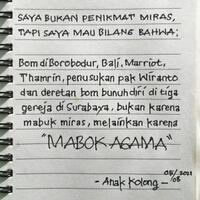 SAYA BUKAN PENIKMAT MIRAS,
TAPI SAYA MAU BILANG BAHWA;
Bom di Borobodur, Bali, Marriot,
Thamrin, penusukan pak Wiranto
dan deretan bom bunuh diri di tiga
gereja di Surabaya, bukan karena
mabuk miras, melainkan karena
"MABOK AGAMA"
- Anak Kolong -
03/2021
/03